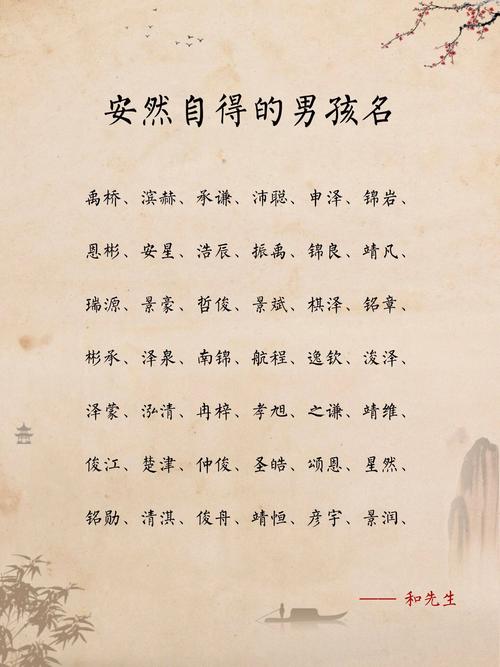 安然自得的男孩名
禹桥、滨赫、承谦、沛聪、申泽、锦岩、
恩彬、安星、浩辰、振禹、锦良、靖凡、
瑞源、景豪、哲俊、景斌、棋泽、铭章、
彬承、泽泉、南锦、航程、逸钦、浚泽、
泽蒙、泓清、冉梓、孝旭、之谦、靖维、
俊江、楚津、仲俊、圣皓、颂恩、星然、
铭勋、清淇、俊舟、靖恒、彦宇、景润、
—— 和先生